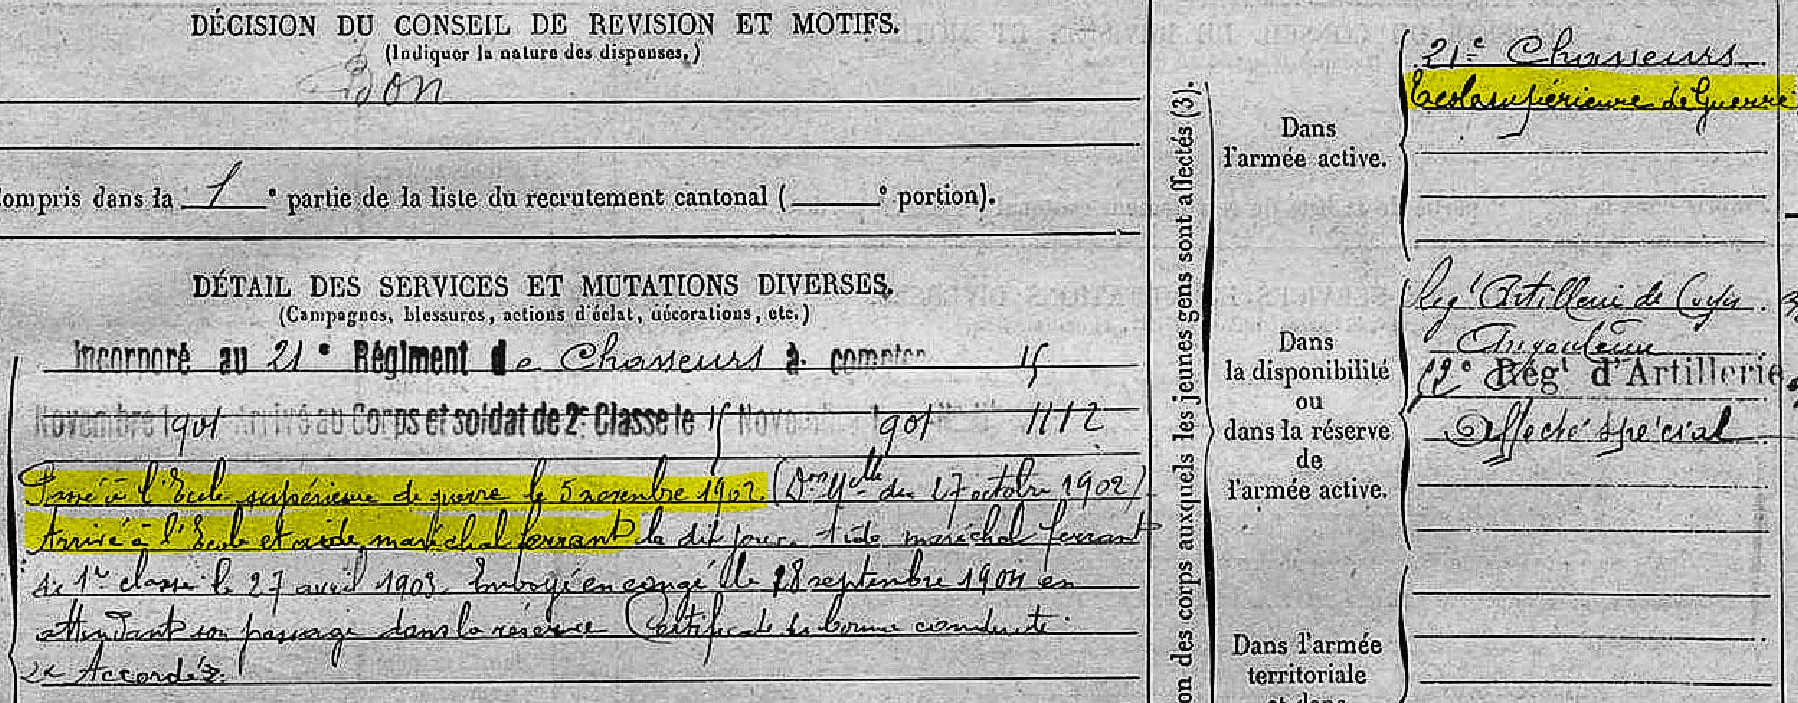 DÉCISION DU CONSEIL DE REVISION ET MOTIFS.
(Indiquer la nature des dispenses.)
Bon
Compris dans la 1e partie de la liste du recrutement cantonal ( e portion).
DÉTAIL DES SERVICES ET MUTATIONS DIVERSES.
(Campagnes, blessures, actions d'éclat, décorations, etc.)
Incorporé au 21e Régiment de Chasseurs à compter 15
Novembre 1901 Arrivé au Corps et soldat de 2e Classe le 15 Novembre 1901 1112
Passé à l'Ecole supérieure de guerre le 5 novembre 1902. (Don Mlle du 17 octobre 1902)
Arrivé à l'Ecole et aide maréchal ferrant le dit jour. Aide maréchal ferrant
de 1re classe le 27 avril 1903. Envoyé en congé le 28 septembre 1904 en
attendant son passage dans la réserve Certificat de bonne conduite
Accordé.
on des corps auxquels les jeunes gens sont affectés (3).
Dans
l'armée active.
21e Chasseurs
Ecole supérieure de Guerre
Dans
la disponibilité
ou
dans la réserve
de
l'armée active.
Regt Artillerie de
Angoulême
12e Régt d'Artillerie
Affecté spécial
Dans l'armée
territoriale
et dans